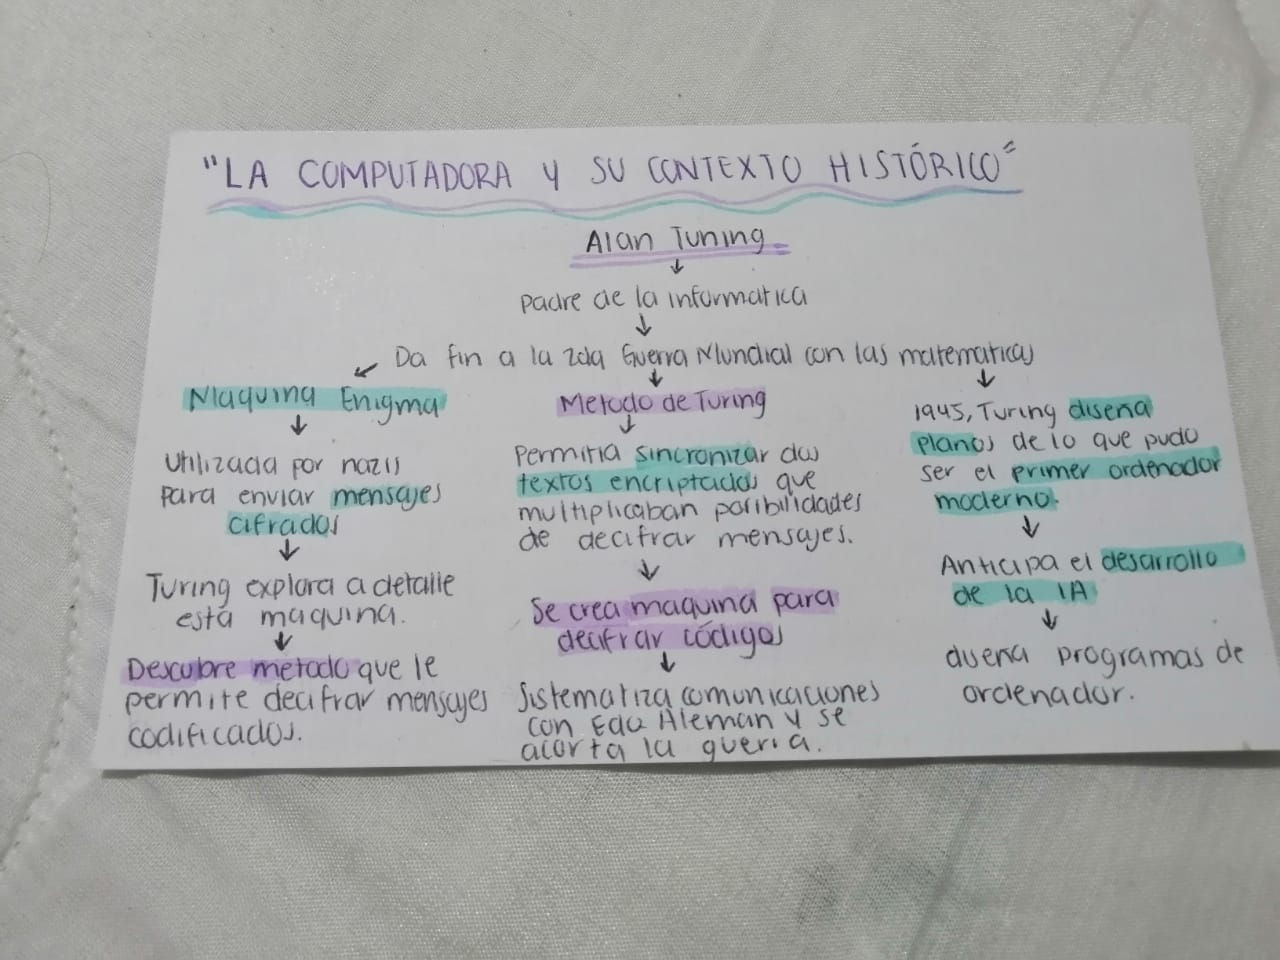 "LA COMPUTADORA Y SU CONTEXTO HISTÓRICO"
Alan Tuning
padre de la informatica
Da fin a la 2da Guerra Mundial con las matematicas
Maquina Enigma
Utilizada por nazis
para enviar mensajes
cifrados
Turing explora a detalle
esta maquina.
Descubre metodo que le
permite decifrar mensajes
codificados.
Metodo de Turing
Permitia sincronizar dos
textos encriptados que
multiplicaban posibilidades
de decifrar mensajes.
Se crea maquina para
decifrar códigos
Sistematiza comunicaciones
con Edo Aleman y se
acorta la guerra.
1945, Turing diseña
planos de lo que pudo
ser el primer ordenador
moderno.
Anticipa el desarrollo
de la IA
diseña programas de
ordenador.